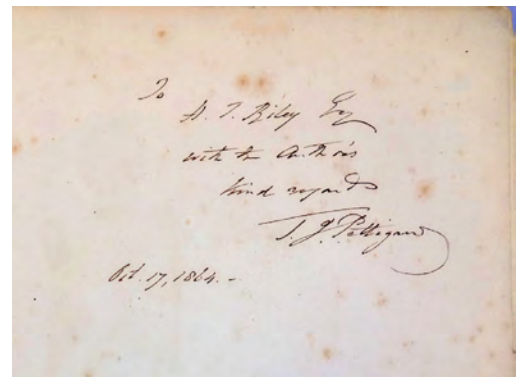 To
H. T. Riley Esq
with the Author's
kind regards
T. J. Pettigrew
Oct. 17, 1864.-